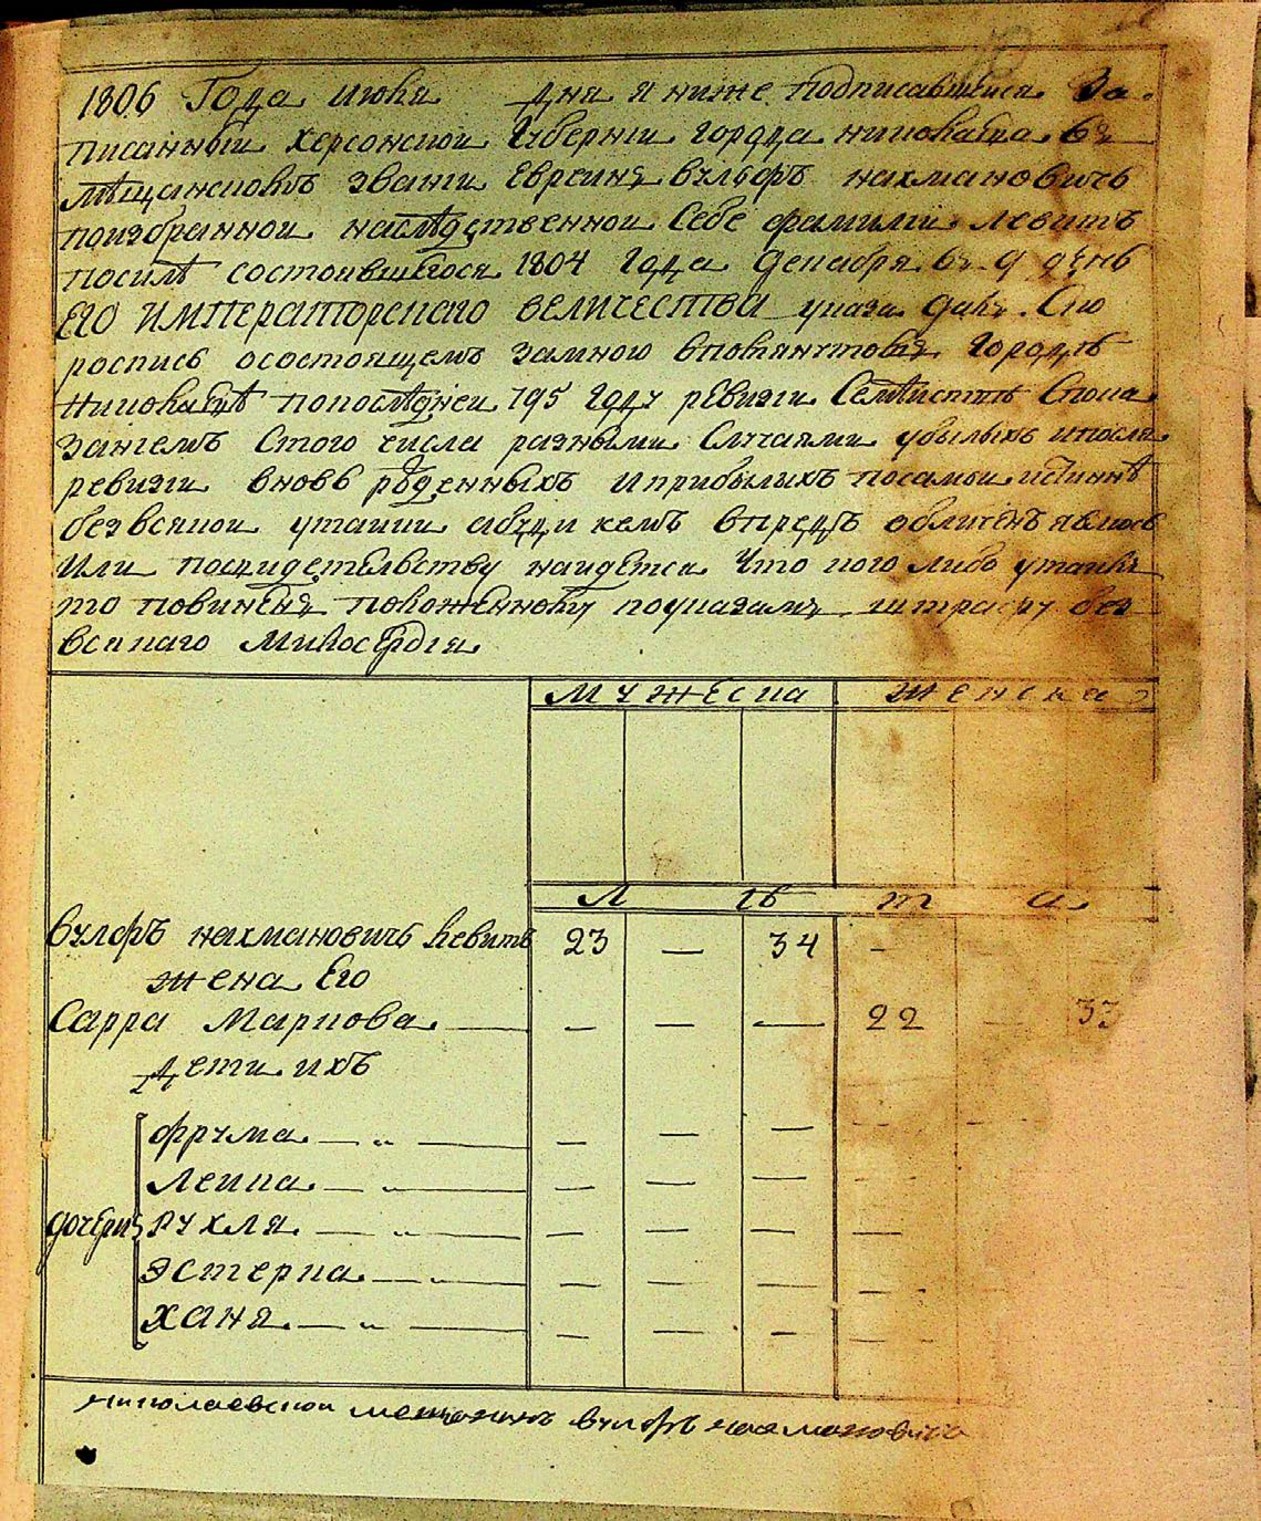 1806 Года июня дня я ниже подписавшейся за-
писанный херсонской Губернии города николаева въ
мѣщанскомъ звании Евреинъ вульфъ нахмановичъ
поизбранной наслѣдственной себе фамилии левитъ
посилѣ состоявшегося 1804 года декабря въ 9 день
ЕГО ИМПЕРАТОРСКАГО ВЕЛИЧЕСТВА указа далъ сию
роспись осостоящемъ замною впомянутомъ городѣ
николаевѣ попоследней 795 году ревизии Семѣйстве Спока
занiемъ Стого числа разными Случаями убылыхъ ипосля
ревизии вновь рожденныхъ иприбылихъ посамой истиннѣ
безвсякой утайки абуди кемъ впредь обличенъ явлюсь
Или посвидетельству найдется Что кого либо утаилъ
то повиненъ положенному поуказамъ штрафу без
всякаго Милосердiя
Мужеска Женска
Л ѣ т а
вулфъ нахмановичъ Левитъ 23 — 34 -
жена Его
Сарра Маркова — — — — 22 — 33
дети ихъ
фрума — „ — — — —
Лейка — „ — — — —
дочери рухля — „ — — — — —
эстерка — „ — — — — —
ханя — „ — — — — —
николаевской мещанинъ вулфъ нахмановичъ